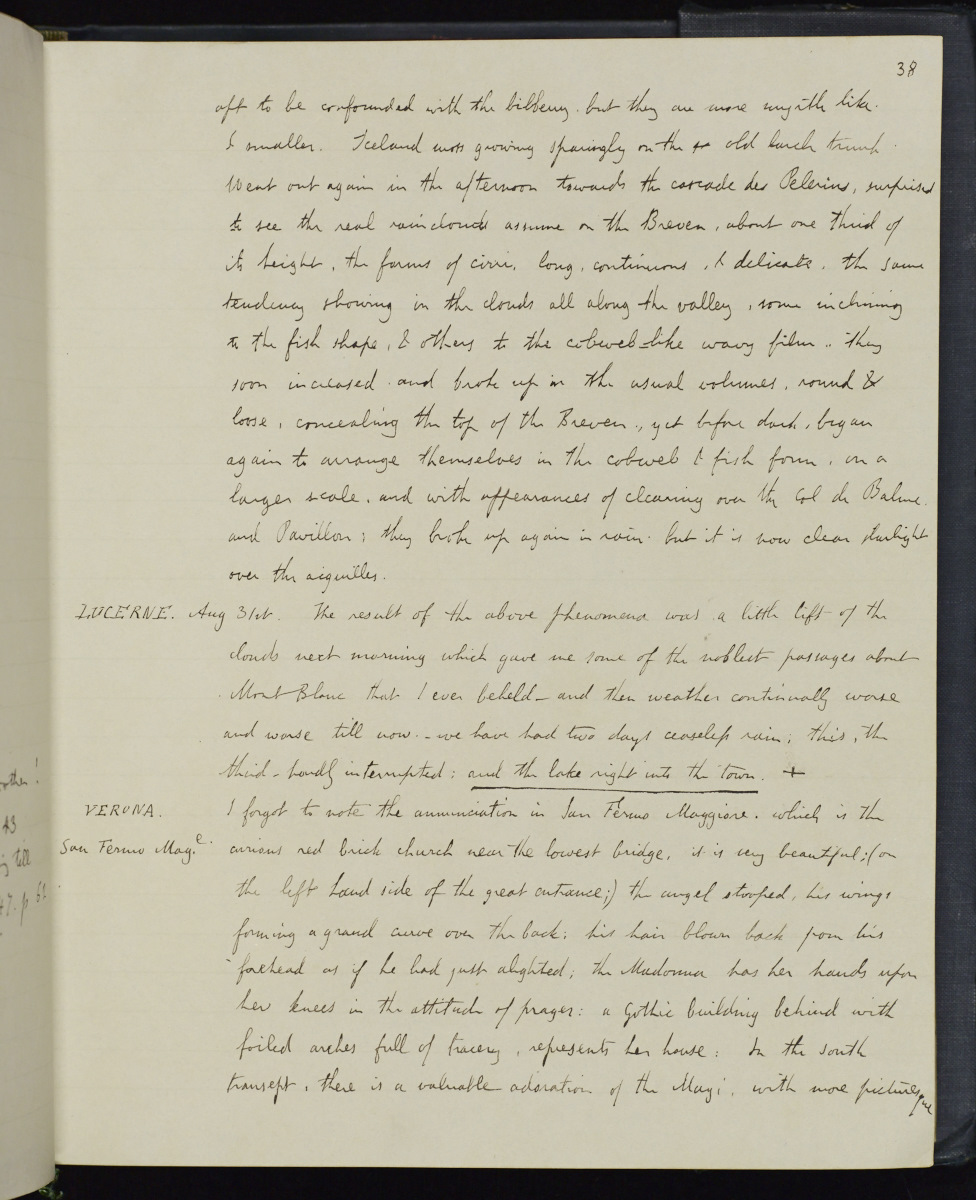 38
apt to be confounded with the bilberry. but they are more myrtle like.
& smaller. Iceland moss growing sparingly on the old larch trunk.
Went out again in the afternoon towards the cascade des Pelerins, surprised
to see the real rainclouds assume on the Breven, about one third of
its height, the forms of cirri, long, continuous, & delicate, the same
tendency showing in the clouds all along the valley, some inclining
to the fish shape, & others to the cobweb-like wavy film.. they
soon increased. and broke up in the usual volumes, round &
loose, concealing the top of the Breven., yet before dark, began
again to arrange themselves in the cobweb & fish form, on a
larger scale. and with appearances of clearing over the Col de Balme.
and Pavillon; they broke up again in rain. but it is now clear starlight
over the aiguilles.
LUCERNE. Aug 31st. The result of the above phenomena was a little lift of the
clouds next morning which gave me some of the noblest passages about
Mont Blanc that I ever beheld - and then weather continually worse
and worse till now. - we have had two days ceaseless rain; this, the
third - hardly interrupted: and the lake right into the town. +
VERONA. I forgot to note the annunciation in San Fermo Maggiore. which is the
San Fermo Mag.e curious red brick church near the lowest bridge, it is very beautiful; (on
the left hand side of the great entrance;) the angel stooped, his wings
forming a grand curve over the back; his hair blown back from his
forehead as if he had just alighted; the Madonna has her hands upon
her knees in the attitude of prayer: a Gothic building behind with
foiled arches full of tracery, represents her house: In the south
transept, there is a valuable adoration of the Magi, with more picturesque
43
p 61